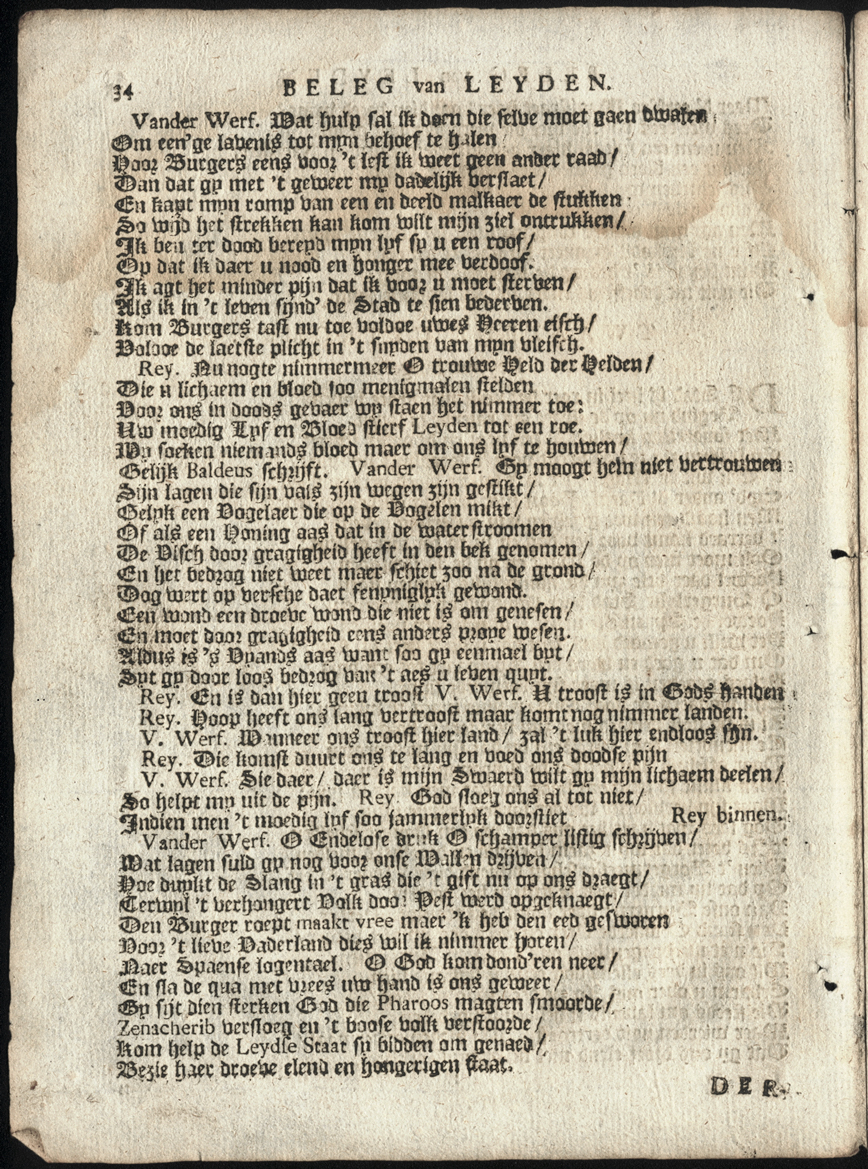 34 BELEG van LEYDEN.
Vander Werf. Wat hulp sal ik doen die selve moet gaen dwalen
Om een'ge lavenis tot myn behoef te halen
Hoor Burgers eens voor 't lest ik weet geen ander raad/
Dan dat gy met 't geweer my dadelijk verslaet/
En kapt myn romp van een en deeld malkaer de stukken
So wijd het strekken kan kom wilt mijn ziel ontrukken/
Ik ben ter dood bereyd myn lyf sy u een roof/
Op dat ik daer u nood en honger mee verdoof.
Ik agt het minder pijn dat ik voor u moet sterven/
Als ik in 't leven sijnd' de Stad te sien bederven.
Kom Burgers tast nu toe voldoe uwes Heeren eisch/
Voldoe de laetste plicht in 't snyden van myn vleisch.
Rey. Nu nogte nimmermeer O trouwe Held der Helden/
Die u lichaem en bloed soo menigmalen stelden
Voor ons in doods gevaer wy staen het nimmer toe:
Uw moedig Lyf en Bloed stierf Leyden tot een roe.
Wy soeken niemands bloed maer om ons lyf te houwen/
Gelijk Baldeus schrijft. Vander Werf. Gy moogt hem niet vertrouwen
Sijn lagen die sijn vals zijn wegen zijn gestikt/
Gelyk een Vogelaer die op de Vogelen mikt/
Of als een Honing aas dat in de waterstroomen
De Visch door gragigheid heeft in den bek genomen/
En het bedrog niet weet maer schiet zoo na de grond/
Dog wert op versche daet fenynniglyk gewond.
Een wond een droeve wond die niet is om genesen/
En moet door gragigheid eens anders proye wesen.
Aldus is 's Vyands aas want soo gy eenmael byt/
Syt gy door loos bedrog van 't aes u leven quyt.
Rey. En is dan hier geen troost V. Werf. U troost is in Gods handen
Rey. Hoop heeft ons lang vertroost maar komt nog nimmer landen.
V. Werf. Wanneer ons troost hier land/ zal 't luk hier endloos sijn.
Rey. Die komst duurt ons te lang en voed ons doodse pijn
V. Werf. Sie daer/ daer is mijn Swaerd wilt gy mijn lichaem deelen/
So helpt my uit de pijn. Rey. God sloeg ons al tot niet/
Indien men 't moedig lyf soo jammerlyk doorstiet Rey binnen.
Vander Werf. O Endelose druk O schamper listig schrijven/
Wat lagen suld gy nog voor onse Wallen drijven/
Hoe duykt de Slang in 't gras die 't gift nu op ons draegt/
Terwyl 't verhongert Volk door Pest werd opgeknaegt/
Den Burger roept maakt vree maer 'k heb den eed gesworen
Voor 't lieve Vaderland dies wil ik nimmer horen/
Naer Spaense logentael. O God kom dond'ren neer/
En sla de qua met vrees uw hand is ons geweer/
Gy sijt dien sterken God die Pharoos magten smoorde/
Zenacherib versloeg en 't boose volk verstoorde/
Kom help de Leydse Staat sy bidden om genaed/
Bezie haer droeve elend en hongerigen staat.
DER